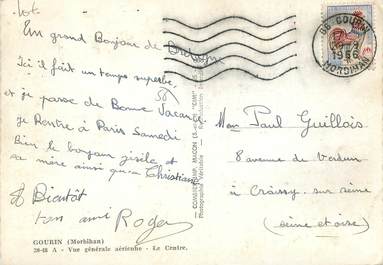 Un grand Bonjour de Bretagne
Ici il fait un temps superbe,
et je passe de Bonne Vacance
je Rentre à Paris Samedi
Bien le bonjour gisèle et
sa mère ainsi qu'a Christiane
A Bientôt
ton ami Roger
GOURIN (Morbihan)
A - Vue générale aérienne - Le Centre.
COMBIER IMP. MACON (S.-et-L.) "CIM"
Photographie Véritable - Reproduction interdite
GOURIN
1966
MORBIHAN
Mon Paul Guillois
8 avenue de Verdun
à Croissy sur seine
(seine et oise)